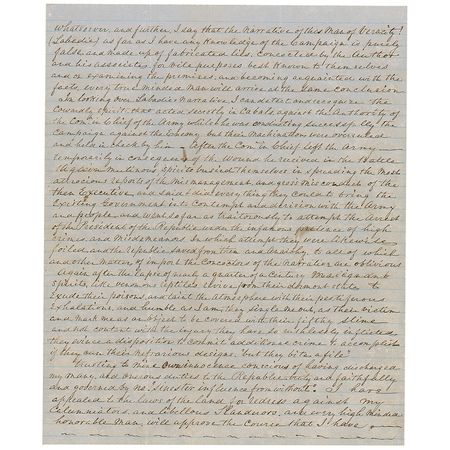 whatsoever, and further, I say that the Narrative of this Man of Veracity!
(Labadie) as far as I have any Knowledge of the Campaign is purely
false and made up of fabricated lies, Concocted by the Author
and his associates for vile purposes best Known to themselves
and on examining the premises, and becoming acquainted with the
facts, every true minded Man will arrive at the same conclusion
In looking over Labadies Narrative I can detect and recognise the
Cowardly spirit that acted secretly in Cabals against the Authority of
the Comr in Chief of the Army while he was conducting successfully the
Campaign against the Enemy, but their Machinations were overruled
and held in check by him — After the Comr in Chief left the Army
temporarily in consequence of the Wound he received in the Battle
these mutinous spirits busied themselves in spreading the Most
atrocious reports of the Mismanagement, and gross misconduct of the
then Executive, and said & did every thing they Could to bring the
Existing Government into Contempt and derision with the Army
and people, and went so far as traitorously to attempt the Arrest
of the President of the Republic under the infamous pretence of high
Crimes and Misdemeanors In which attempt they were likewise
foiled, and the Republic saved from then anarchy to all of which
and other Matters of import the Conscience of the Narrator are oblivious
Again after the lapse of nearly a quarter of a Century Malignant
spirits, like venomous reptiles revive from their dormant state to
Exude their poisons and taint the atmosphere with their pestiferous
Exhalations, and humble as I am, they single me out as their victim
and Mark me as an object to be covered with their filthy slime
and not content with the injury they have so wickedly inflicted
they evince a disposition to commit additional crime to accomplish
if they can their Nefarious designs, but they bite a file
Trusting to mine own innocence conscious of having discharged
my many and onerous duties to the Republic truly and faithfully
and governed by no sinister influence from without I have
appealed to the laws of the land for redress against my
Calumniators, and libellous Slanderers, and every high minded
honorable Man, will approve the Course that I have